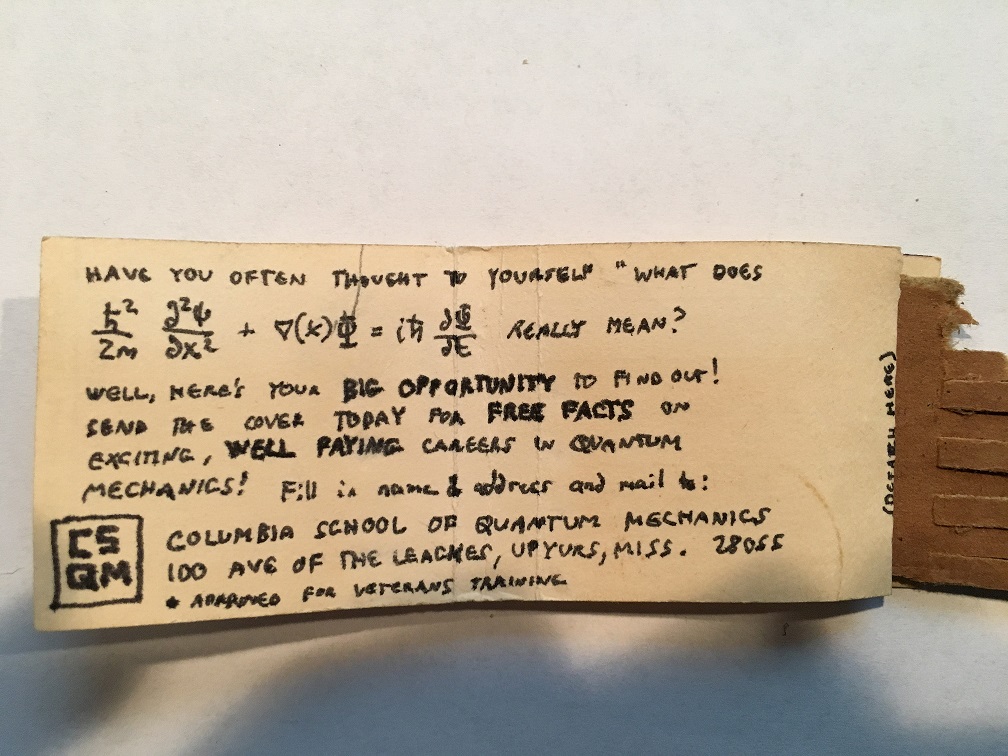 HAVE YOU OFTEN THOUGHT TO YOURSELF "WHAT DOES
ℏ²/2m ∂²ψ/∂x² + ∇(x)Ψ = iℏ ∂Ψ/∂t REALLY MEAN?
WELL, HERE'S YOUR BIG OPPORTUNITY TO FIND OUT!
SEND THE COVER TODAY FOR FREE FACTS ON
EXCITING, WELL PAYING CAREERS IN QUANTUM
MECHANICS! Fill in name & address and mail to:
CS
QM
COLUMBIA SCHOOL OF QUANTUM MECHANICS
100 AVE OF THE LEACHES, UPYURS, MISS. 28055
* APPROVED FOR VETERANS TRAINING
(DETATCH HERE)